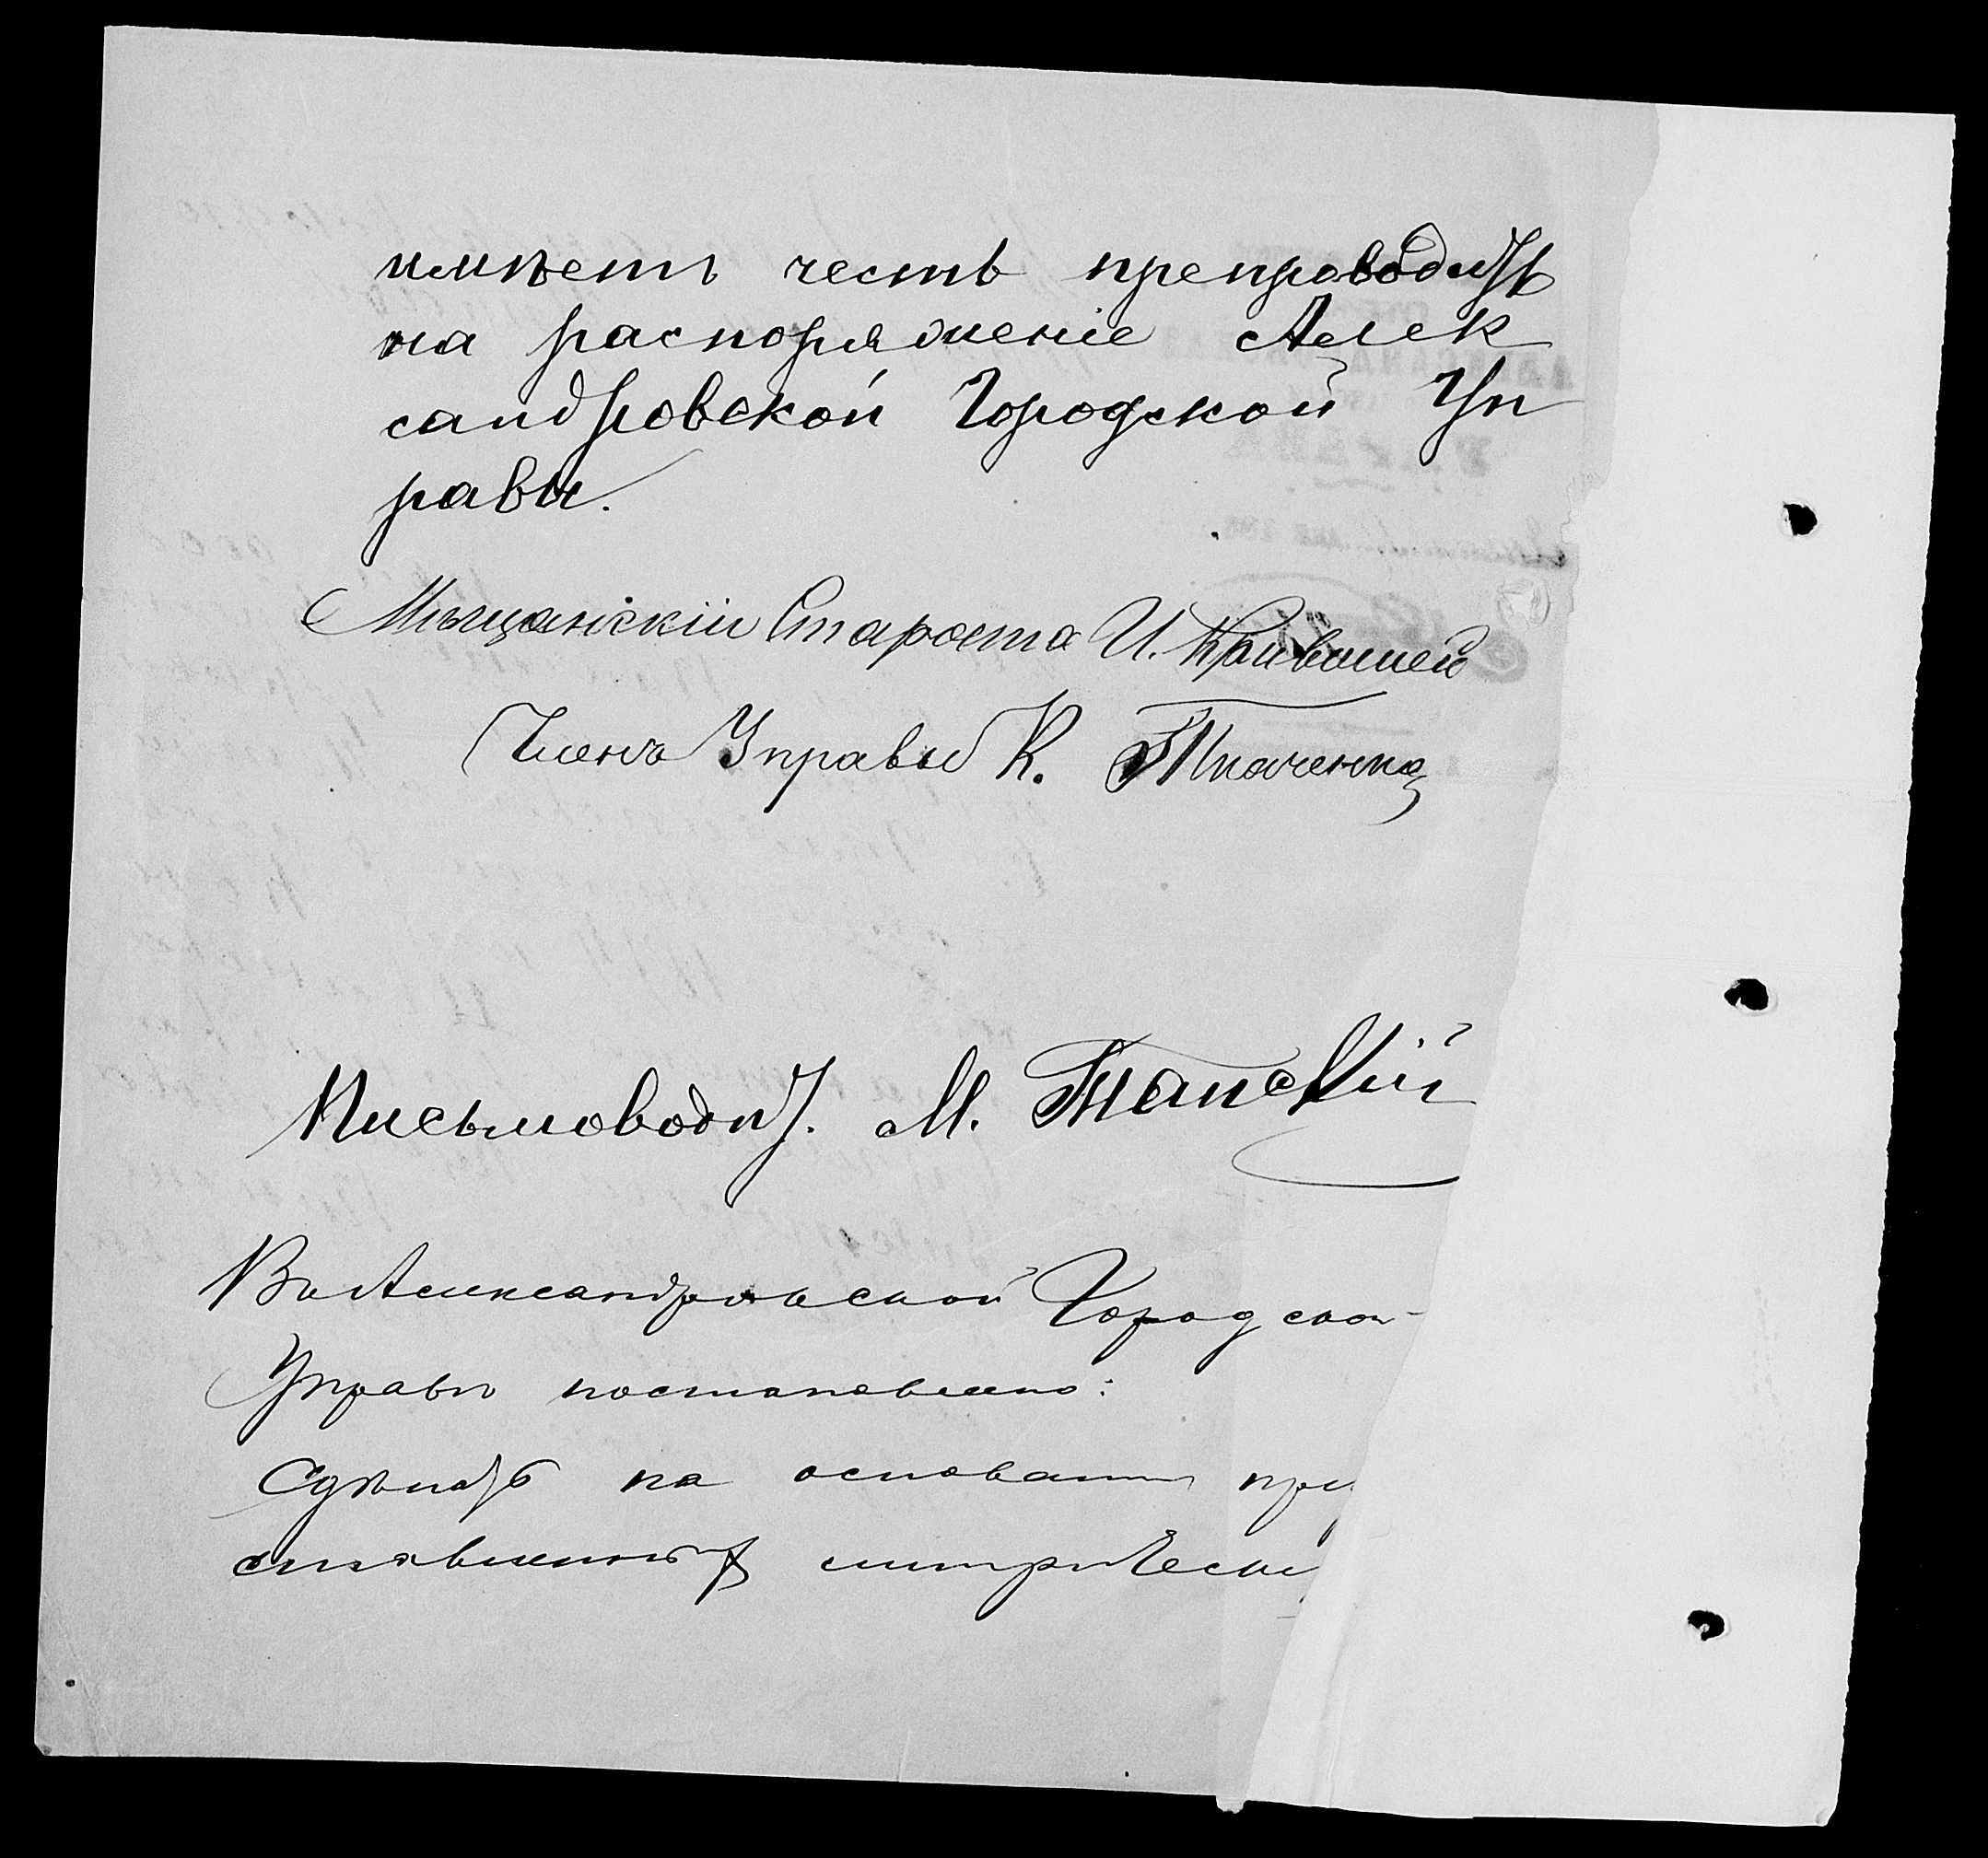 имѣетъ честь препроводить
на распоряженіе Алек
сандровской Городской Уп
равы.
Мѣщанскій Староста И. Кривошей
Членъ Управы К. Ткаченко
Письмоводит. М.
Въ Александровской Городской
Управѣ постановлено:
Сдѣлать на основаніи при
ставленныхъ метрическ